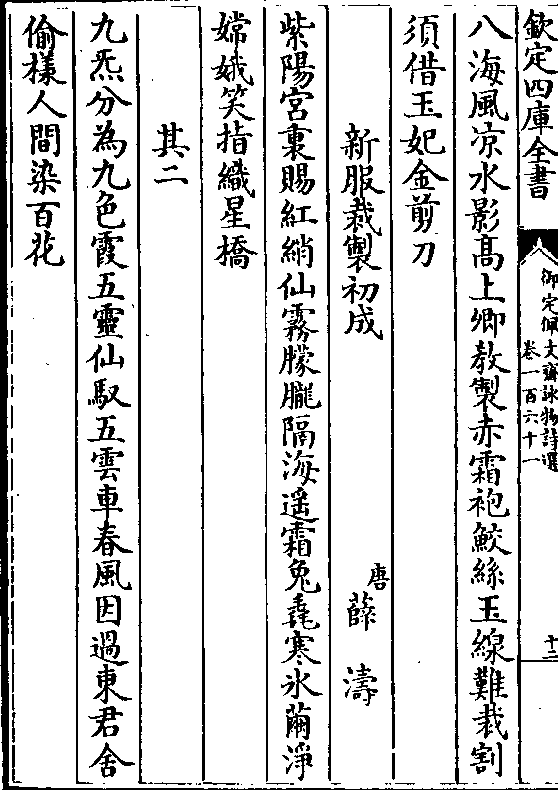 欽定四庫全書
御定佩文齋詠物詩選
卷一百六十一
十二
八海風凉水影髙上卿教製赤霜袍鮫絲玉線難裁割
須借玉妃金剪刀
新服裁製初成
唐薛濤
紫陽宮裏賜紅綃仙霧朦朧隔海遥霜兔毳寒氷繭淨
嫦娥笑指織星橋
其二
九炁分為九色霞五靈仙馭五雲車春風因過東君舍
偷樣人間染百花